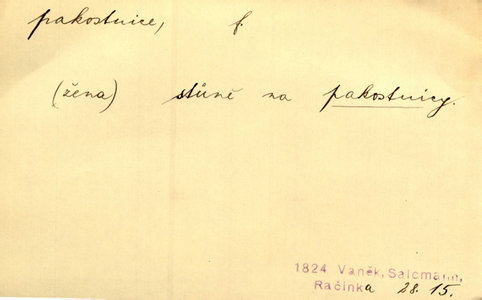 pakostnice, f.
(žena) stůně na pakostnicy.
1824 Vaněk, Salomann,
Račinka 28. 15.